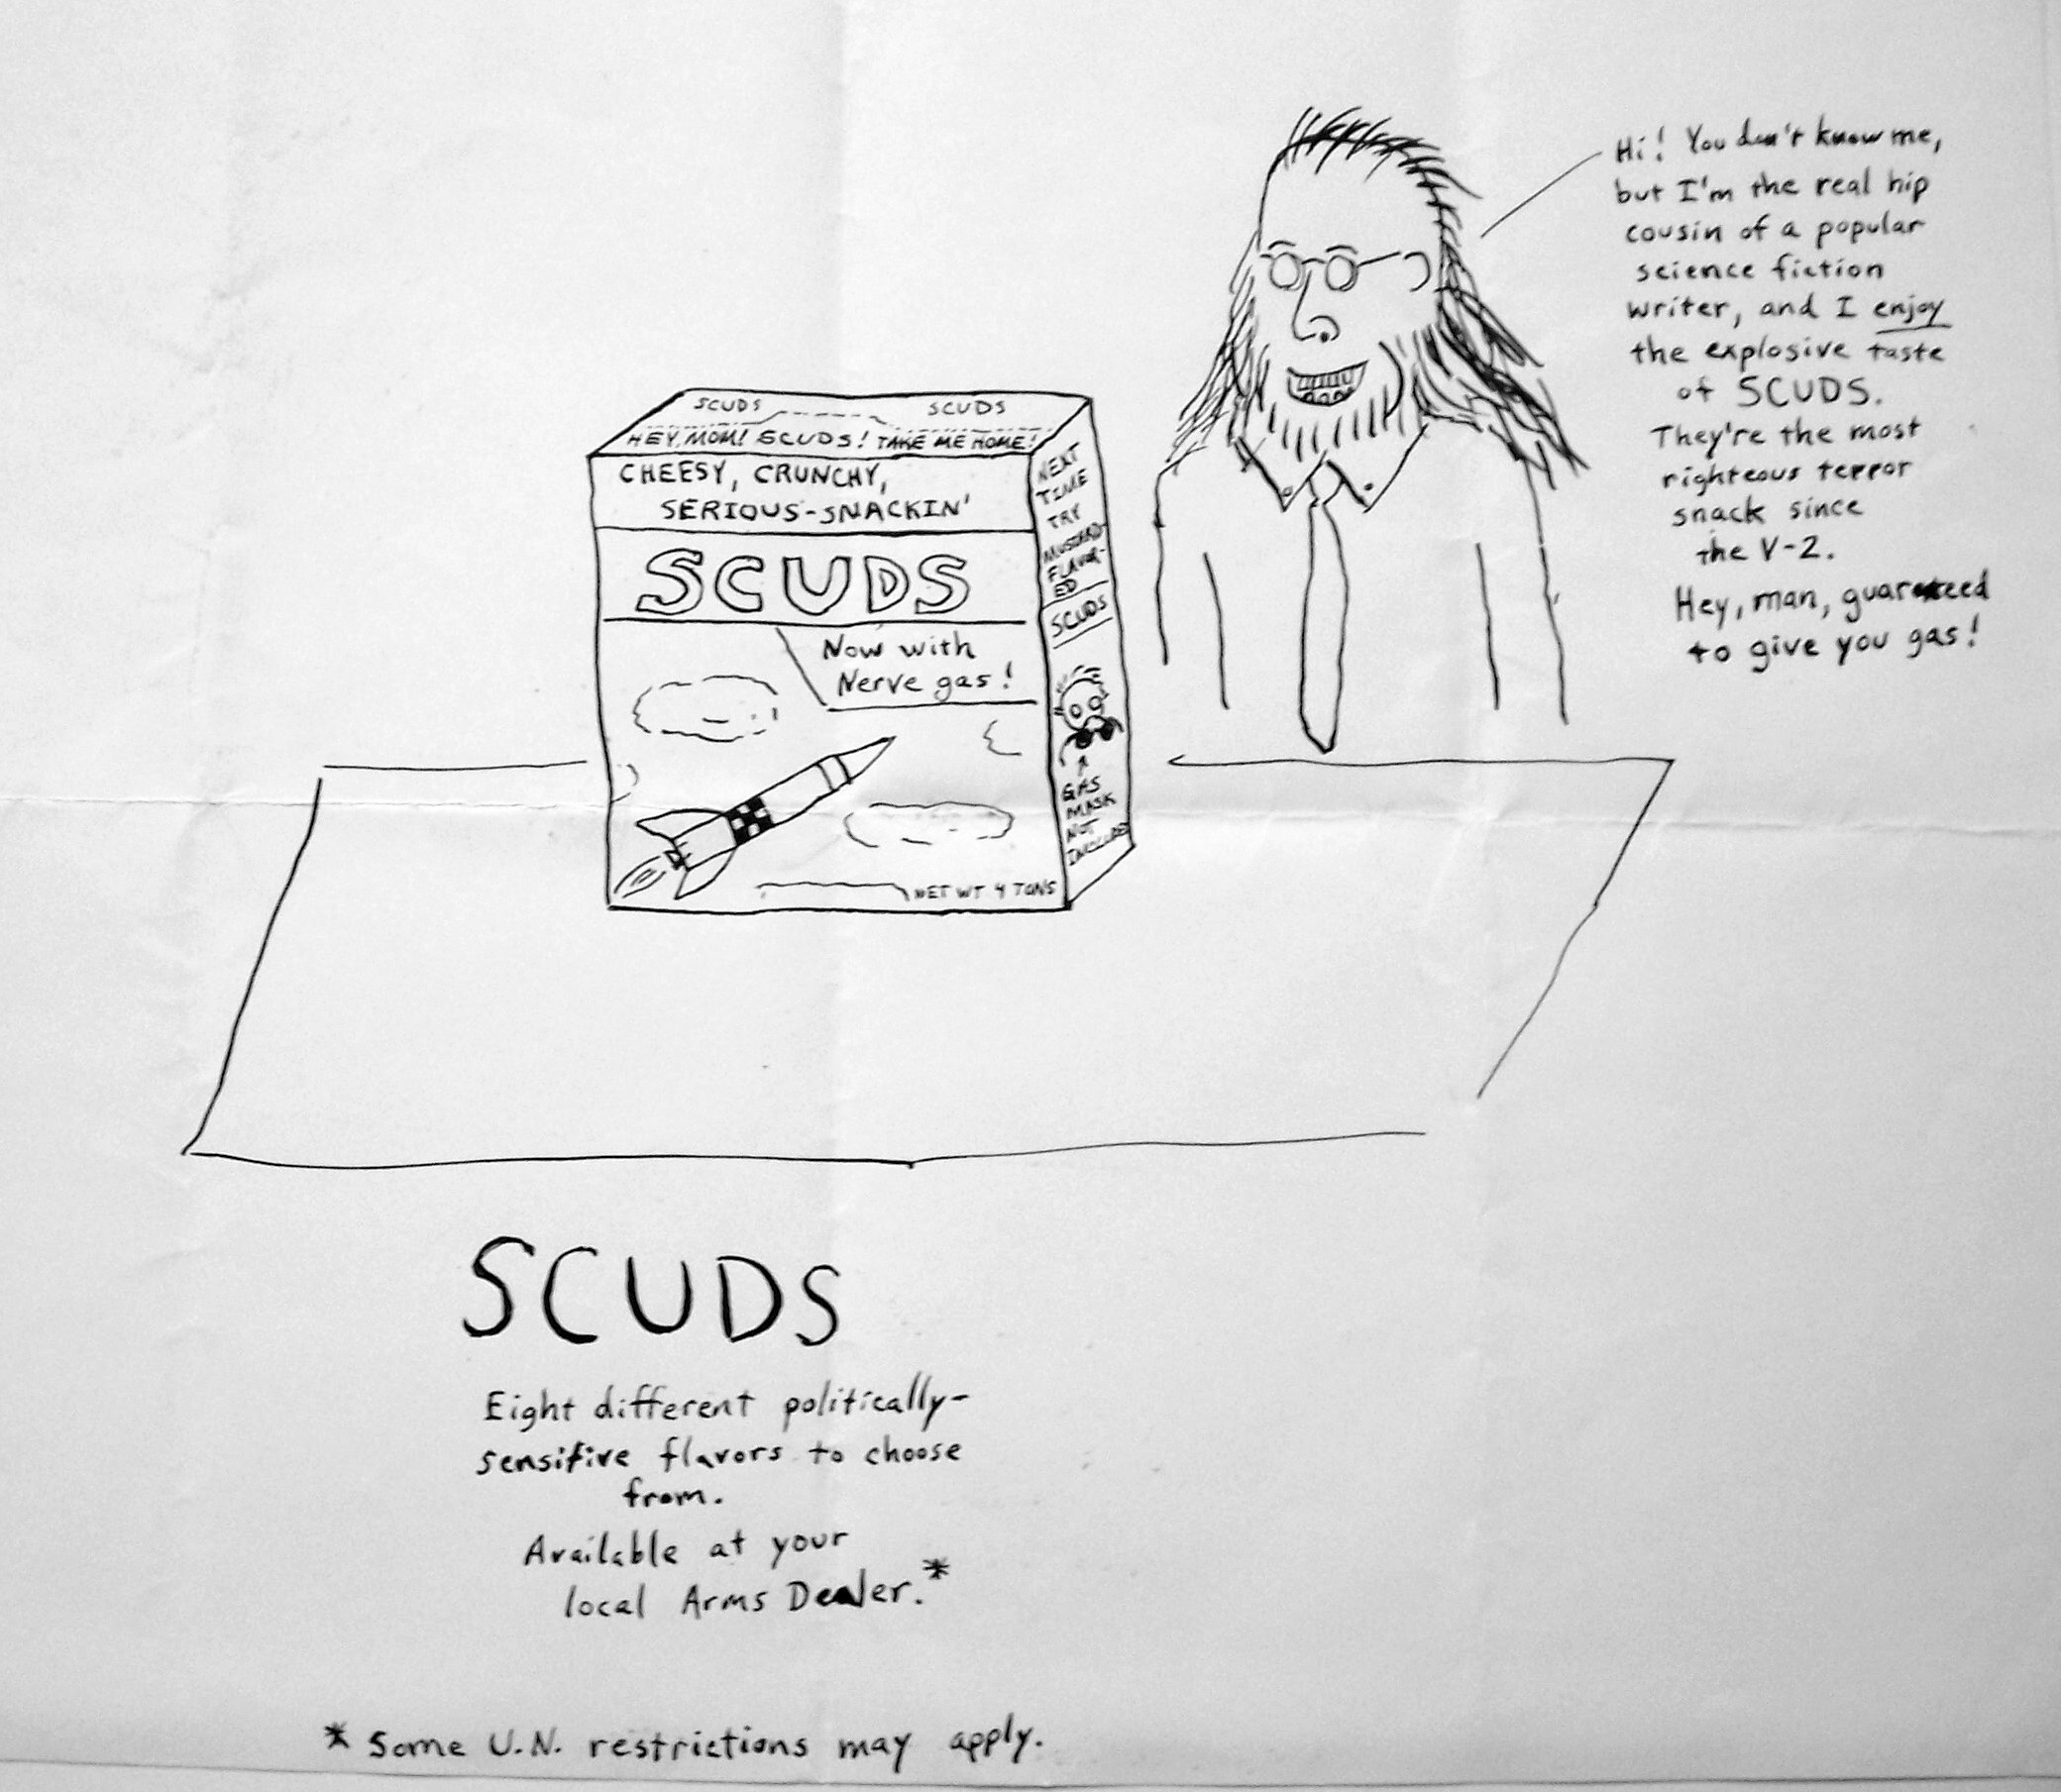 Hi! You don't know me,
but I'm the real hip
cousin of a popular
science fiction
writer, and I enjoy
the explosive taste
of SCUDS.
They're the most
righteous terror
snack since
the V-2.
Hey, man, guaranteed
to give you gas!
SCUDS SCUDS
HEY, MOM! SCUDS! TAKE ME HOME!
CHEESY, CRUNCHY,
SERIOUS-SNACKIN'
SCUDS
Now with
Nerve gas!
NET WT 4 TONS
NEXT
TIME
TRY
MUSTARD-
FLAVOR-
ED
SCUDS
GAS
MASK
NOT
INCLUDED
SCUDS
Eight different politically-
sensitive flavors to choose
from.
Available at your
local Arms Dealer.*
* Some U.N. restrictions may apply.